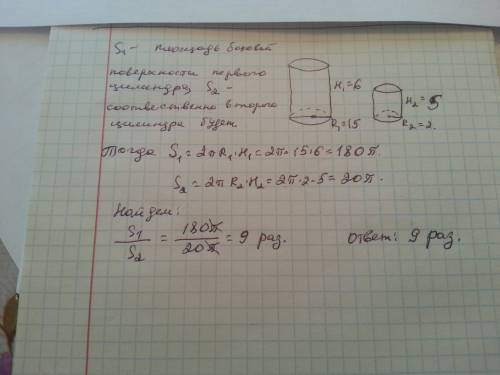 S₁ - площадь боковой
поверхности первого
цилиндра, S₂ -
соответственно второго
цилиндра будет.
H₁=6
R₁=15
H₂=5
R₂=2.
Тогда S₁ = 2πR₁·H₁ = 2π·15·6 = 180π.
S₂ = 2πR₂·H₂ = 2π·2·5 = 20π.
Найдем:
S₁/S₂ = 180π/20π = 9 раз.
Ответ: 9 раз.